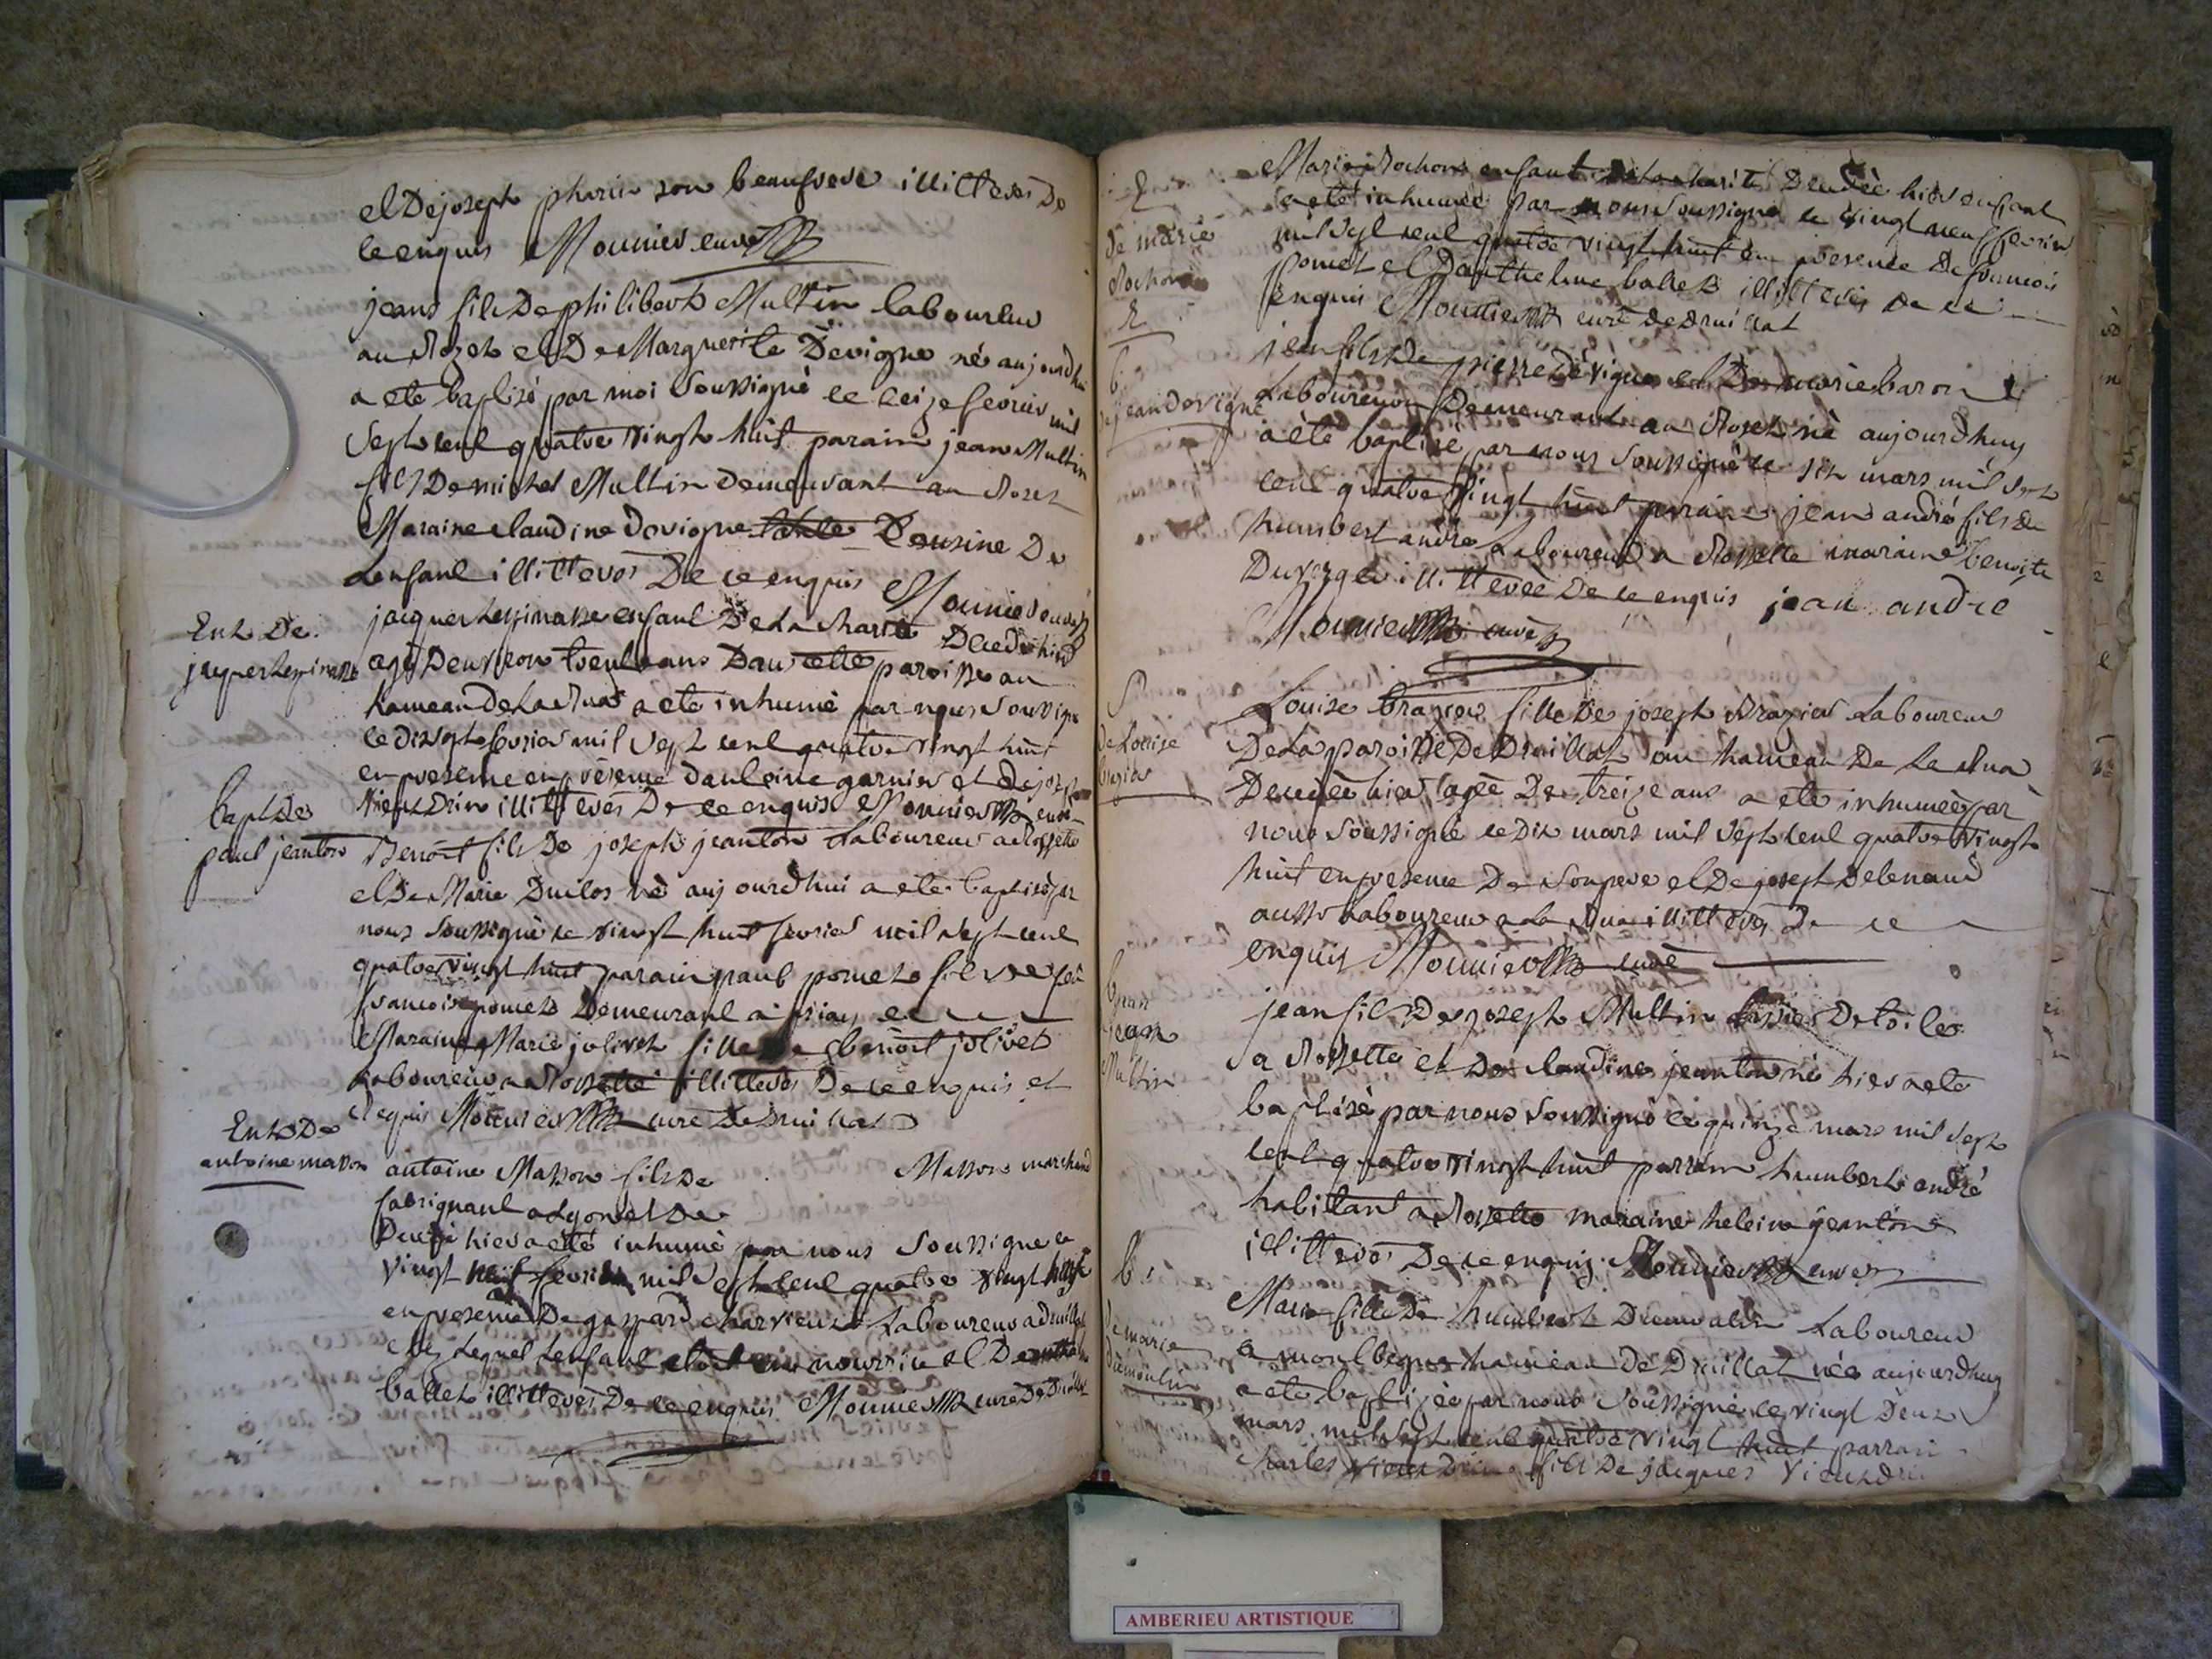 et De joseph pharin son beaufrere illitteres De
ce enquis Mounier curé
jean fils De philibert Multin laboureur
au Rozet et De Marguerite Devigne né aujourdhui
a eté baptisé par moi Soussigné le seize fevrier mil
Sept cent quatre vingt huit parain jean Multin
fils De michel Multin demeurant au Rozet
Maraine claudine Devigne tante Cousine De
Lenfant illitteres De ce enquis Mounier curé
Ent. De
jacques Lespinasse
jacques Lespinasse enfant De La charité Decedé hier
agé Denviron trente ans Dans cette paroisse au
hameau De La Rua a eté inhumé par nous Soussigné
le dixsept fevrier mil Sept cent quatre vingt huit
en presence en presence dantoine garnier et De joseph
vieudrin illitteres De ce enquis Mounier curé
Bapt De
paul jeanton
Benoit fils De joseph jeanton Laboureur a Rossette
et De Marie Duclos né aujourdhui a eté baptisé par
nous Soussigné le vingt huit fevrier mil Sept cent
quatre vingt huit parain paul pomet fils De feu
francois pomet Demeurant a priay et
Maraine Marie jolivet fille De benoit jolivet
Laboureur a Rossette illitteres De ce enquis et
Requis Mounier curé De Druillat
Ent De
antoine masson
antoine Masson fils De Masson marchand
fabriquant a Lyon et De
Decedé hier a eté inhumé par nous Soussigné le
vingt neuf fevrier mil Sept cent quatre vingt huit
en presence De gaspard charvieux Laboureur a druillat
chez Lequel Lenfant etoit en nourrice et De
ballet illitteres De ce enquis Mounier curé De Druillat
E
De marie
Rochon
Marie Rochon enfant De La charité Decedée hier enfant
a eté inhumée par nous Soussigné le vingt neuf fevrier
mil Sept cent quatre vingt huit en presence De francois
pomet et Danthelme ballet illitteres De ce
enquis Mounier curé De Druillat
b.
jean Devigne
jean fils De pierre Devigne et De marie baron
Laboureur Demeurant au Rozet né aujourdhuy
a eté baptisé par nous Soussigné le six mars mil Sept
cent quatre vingt huit parain jean andré fils De
humbert andré Laboureur a Rossette maraine benoite
Duverger illitterée De ce enquis jean andre
Mounier curé
S
de Louise
brazier
Louise brazier fille De joseph Brazier Laboureur
De La paroisse De Druillat au hameau De La Rua
Decedée hier agée De treize ans a eté inhumée par
nous Soussigné le Dix mars mil Sept cent quatre vingt
huit en presence De Son pere et De joseph Delenaud
aussi Laboureur a La Rua illitteres De ce
enquis Mounier curé
jean
Multin
jean fils De joseph Multin tissier De toiles
a Rossette et De claudine jeanton né hier a eté
baptisé par nous Soussigné le quinze mars mil Sept
cent quatre vingt huit parrain humbert andré
habitant a Rossette maraine heleine jeanton
illitteres De ce enquis Mounier curé
b.
De marie
Dumoulin
Marie fille De humbert Laboureur
a montbegue hameau De Druillat née aujourdhuy
a eté baptizée par nous Soussigné le vingt Deux
mars mil Sept cent quatre vingt huit parrain
charles vieudrin fils De jacques vieudrin
AMBERIEU ARTISTIQUE